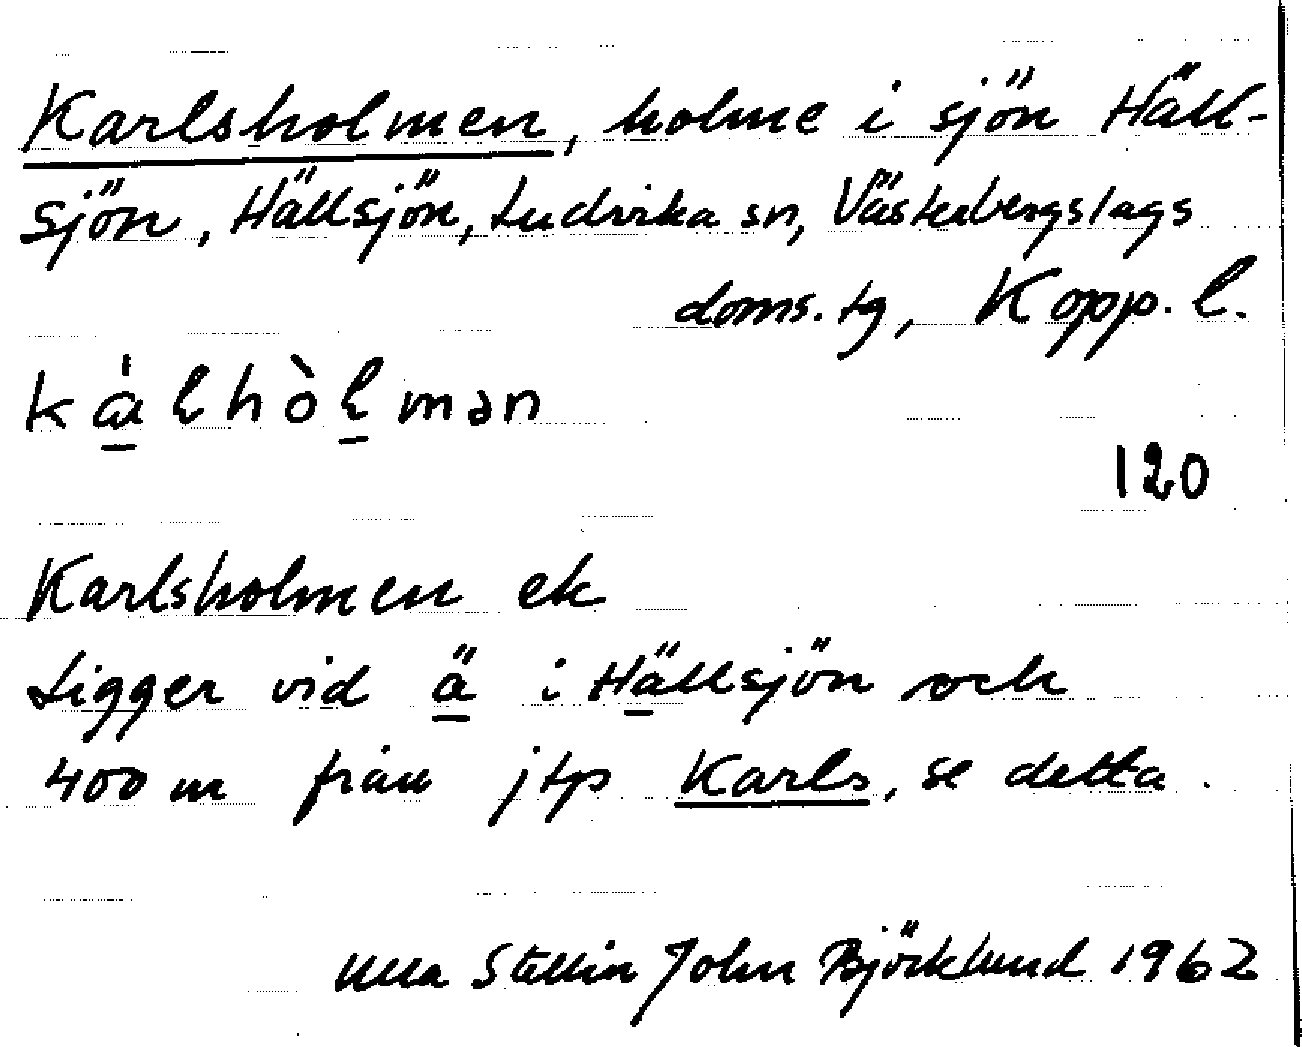 Karlsholmen, holme i sjön Häll-
sjön, Hällsjön, Ludvika sn, Västerbergslags
doms. tg, Kopp. l.
kálhòlmən
120
Karlsholmen ek
Ligger vid ä i Hällsjön och
400 m från jtp Karls, se detta.
Ulla Stellin John Björklund 1962